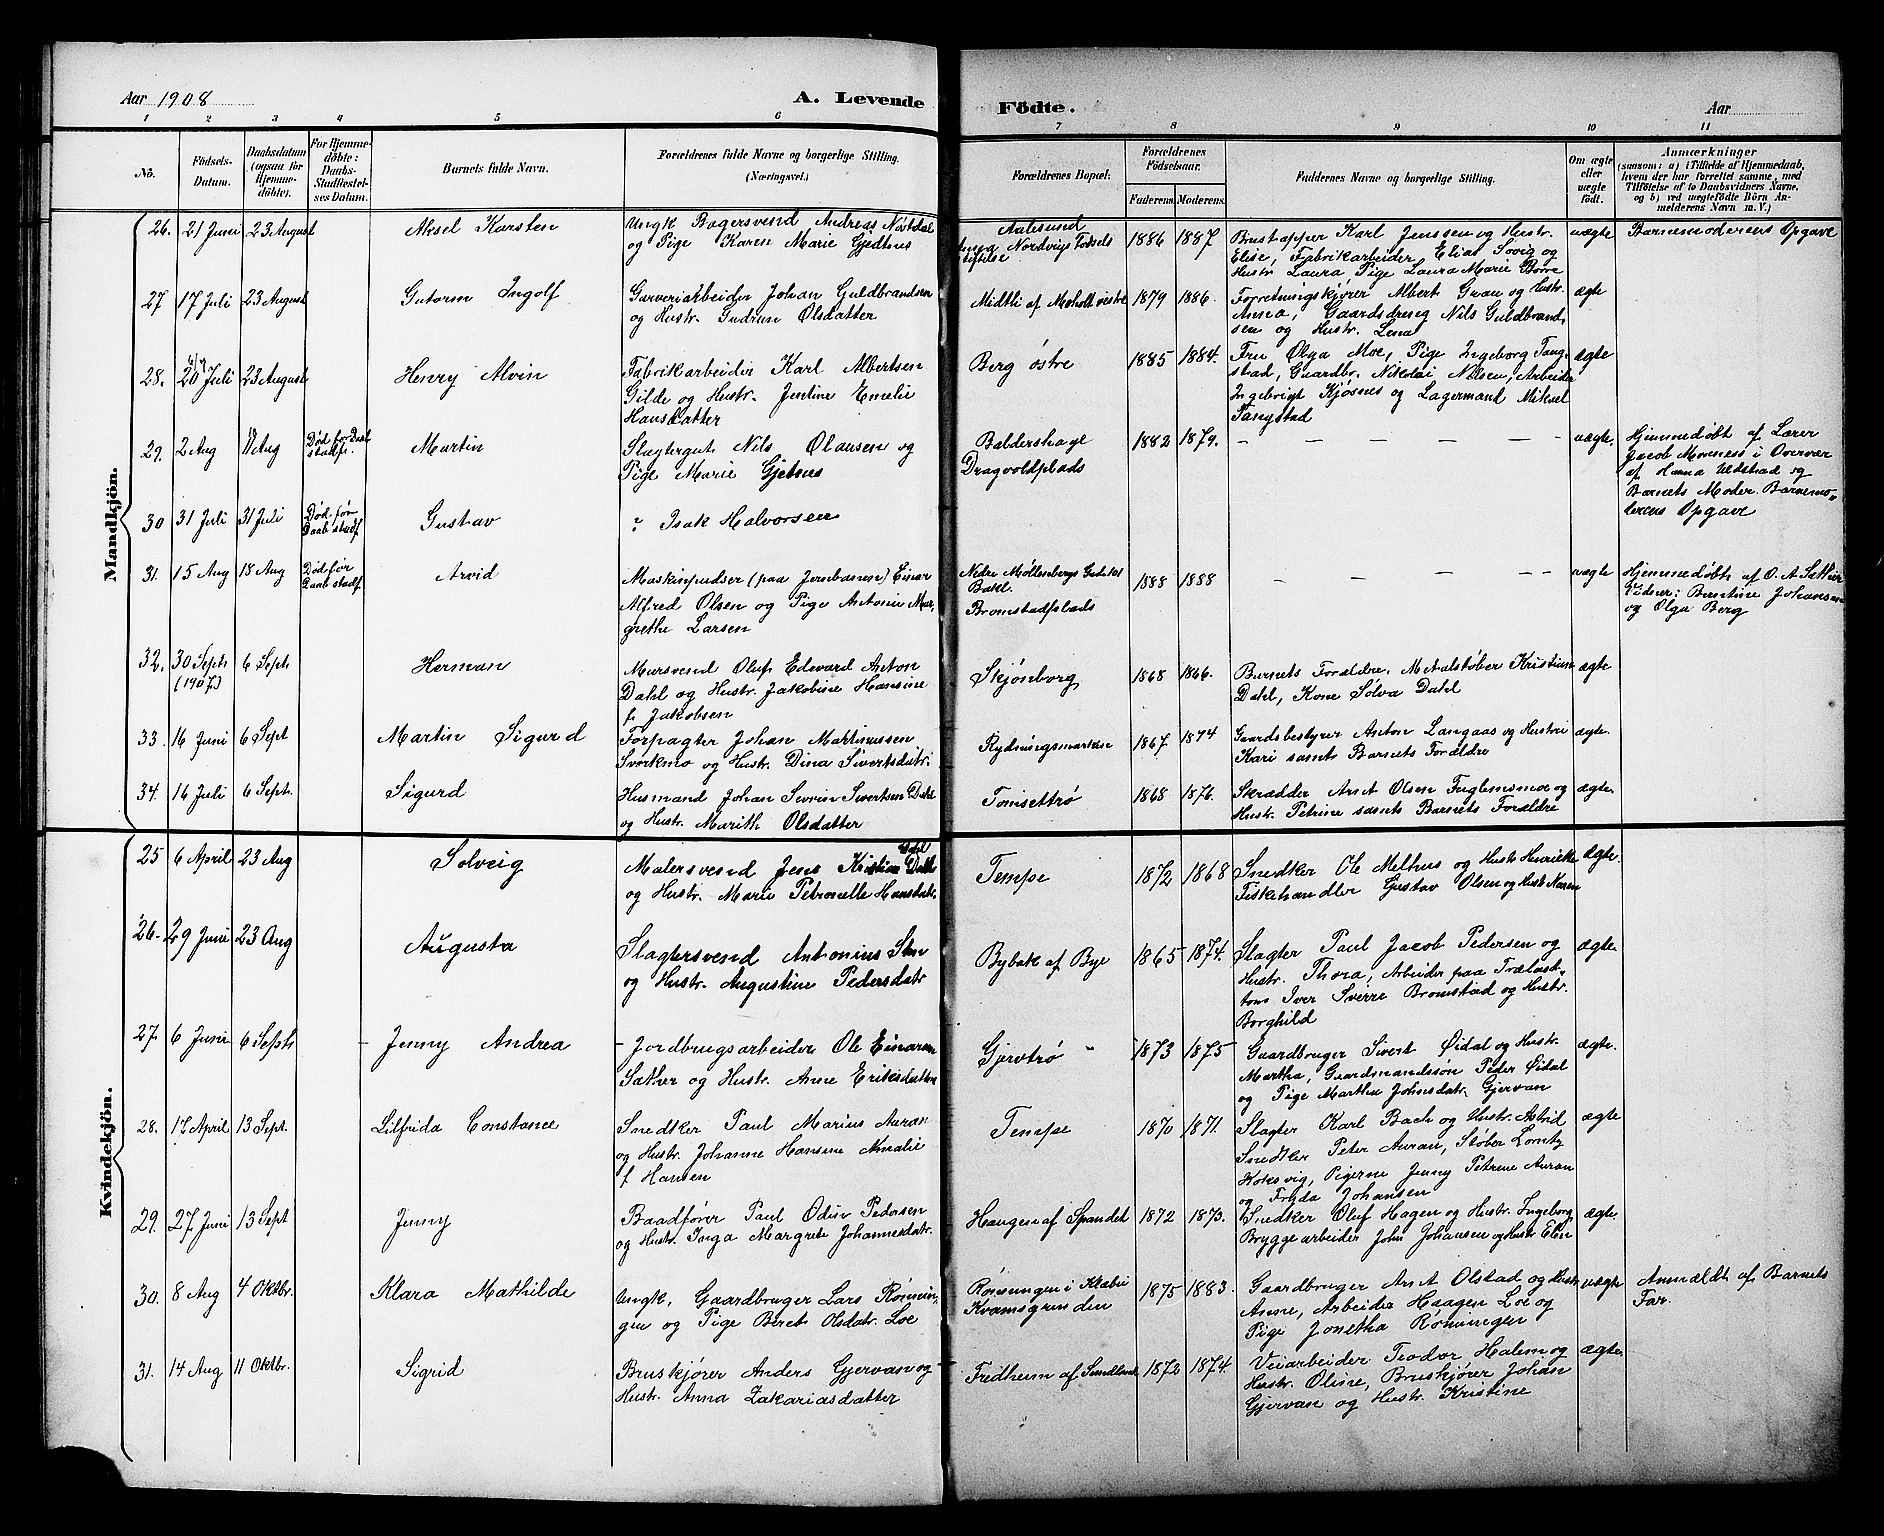 Aar 1908
A. Levende Födte.
Aar
1 2 3 4 5 6 7 8 9 10 11
No.
Födsels-
Datum.
Daabsdatum
(ogsaa for
Hjemme-
döbte).
For Hjemme-
döbte:
Daabs-
Stadfæstel-
ses Datum.
Barnets fulde Navn.
Forældrenes fulde Navne og borgerlige Stilling.
(Næringsvei.)
Forældrenes Bopæl.
Forældrenes
Födselsaar.
Faderens. Moderens.
Faddernes Navne og borgerlige Stilling.
Om ægte
eller
uægte
födt.
Anmærkninger
(saasom: a) i Tilfælde af Hjemmedaab,
hvem der har forrettet samme, med
Tilföielse af to Daabsvidners Navne,
og b) ved uægtefödte Börn An-
melderens Navn m. V.)
Mandkjön.
26. 21 Juni 23 August Aksel Karsten
Ungk Bagersvend Andreas
og Pige Karen Marie Gjedtnes
Aalesund
Nordvigs Fødsels
stiftelse
1886 1887
Brustapper Karl Jenssen og Hustr.
Elise, Fabrikarbeider Elias Sovig og
Hustr Laura Pige Laura Marie Borre
uægte Barnemoderens Opgave
27 17 Juli 23 August Gutorm Ingolf
Garveriarbeider Johan Guldbrandsen
og Hustr. Gudrun Olsdatter
Midtli af Moholt vestre 1879 1886.
Forretningskjører Albert Grau og Hustr.
Anna, Gaardsdreng Nils Guldbrand,
sen og Hustr. Lena
ægte
28. 20 Juli 23 August Henry Alvin
Fabrikarbeider Karl Albertsen
Gilde og Hustr. Jentine Emelie
Hansdatter
Berg østre 1885 1884.
Fru Olga Moe, Pige Ingeborg Tang-
stad, Gaardbr. Nikolai Nilsen, Arbeider
Ingebrigt Kjøsnes og Lagermand Mikael
Tangstad
ægte
29. 2 Aug 11 Aug Død før Daab
stadf. Martin
Slagtergut Nils Olausen og
Pige Marie Gjetnes
Baldershage
Dragvoldplads
1882 1879. – – – – –
uægte. Hjemmedøbt af Lærer
Jacob Moreness i Overvær
af Hanna Udstad og
Barnets Moder. Barnemo-
derens Opgave
30 31 Juli 31 Juli Død før
Daab stadf. Gustav
" Isak Halvorsen
31. 15 Aug 18 Aug Død før
Daab stadf. Arvid
Maskinpudser (paa Jernbanen) Einar
Alfred Olsen og Pige Antonie Mar,
grethe Larsen
Nedre Møllenbergs Gade
Bakl.
Bromstadplads
1888 1888 – – – – –
uægte Hjemmedøbt af O. A. Sather
Vidner: Berntine Johansen
og Olga Berg
32. 30 Sept
(1907) 6 Sept Herman
Mursvend Oluf Edvard Anton
Dahl og Hustr. Jakobine Hansine
f. Jakobsen
Skjønborg 1868 1866.
Barnets Forældre. Metalstøber Kristian
Dahl, Kone Sølva Dahl
ægte
33. 16 Juni 6 Sept Martin Sigurd
Forpagter Johan Martinussen
Svorkmo og Hustr. Dina Sivertsdatr.
Rydningsmarken 1867. 1874
Gaardsbestyrer Anton Langaas og Hustru
Kari samt Barnets Forældre
ægte.
34. 16 Juli 6 Sept. Sigurd
Husmand Johan Sevrin Sivertsen Dahl
og Hustr. Marith Olsdatter
Tomsettrø 1868 1876.
Skrædder Arnt Olsen Fuglemsmo og
Hustr. Petrine samt Barnets Forældre
ægte.
Kvindekjön.
25 6 April 23 Aug Solveig
Dahl
Malersvend Jens Kristian
og Hustr. Marie Petronelle Hansdatr.
Tempe 1872 1868
Snedker Ole Melhus og Hustr Henrikke
Fiskehandler Gustav Olsen og Hustr Maren
ægte.
26. 29 Juni 23 Aug Augusta
Slagtersvend Antonius Sten
og Hustr. Augustine Pedersdatr
Bybak af Bye 1865 1874.
Slagter Paul Jacob Pedersen og
Hustr. Thora, Arbeider paa Trælast,
tom Iver Sverre Bromstad og Hustr.
Borghild
ægte.
27. 6 Juni 6 Septb – Jenny Andrea
– Jordbrugsarbeider Ole Einarsen
Sather og Hustr. Anne Eriksdatter
Gjervtrø " 1873 1875 –
Gaardbruger Sivert Øidal og Hustr.
Martha, Gaardmandssøn Peder Øidal
og Pige Marthea Johnsdatr. Gjervan
ægte.
28. 17 April 13 Sept. Lilfrida Constance
Snedker Paul Marius Auran
og Hustr. Johanne Hansine Amalie
f Hansen
Tempe 1870 1871.
Slagter Karl Bach og Hustr. Astrid
Snedker Peter Auran, Støber Lorntz
Koksvig, Pigerne Jenny Petrine Auran
og Fryda Johansen
ægte
29. 27 Juni 13 Sept Jenny
Baadfører Paul Odin Pedersen
og Hustr. Inga Margrete Johannesdatr.
Haugen af Spandet 1872 1873.
Snedker Oluf Hagen og Hustr. Ingeborg,
Bryggearbeider John Johansen og Hustr Elen
ægte.
30. 8 Aug 4 Oktbr. Klara Mathilde
Ungk, Gaardbruger Lars Rønnin,
gen og Pige Beret Olsdatr. Loe
Rønningen i Klæbu
Kvamsgrinden
1875 1883.
Gaardbruger Arnt Olstad og Hustr
Anne, Arbeider Haagen Loe og
Pige Jonetha Rønningen
uægte Anmeldt af Barnets
Far.
31. 14 Aug 11 Oktbr. Sigrid
Bruskjører Anders Gjervan og
Hustr. Anna Zakariasdatter
Fredheim af Sundland 1872 1874.
Veiarbeider Teodor Halem og
Hustr. Oline, Bruskjører Johan
Gjervan og Hustr. Kristine
ægte.